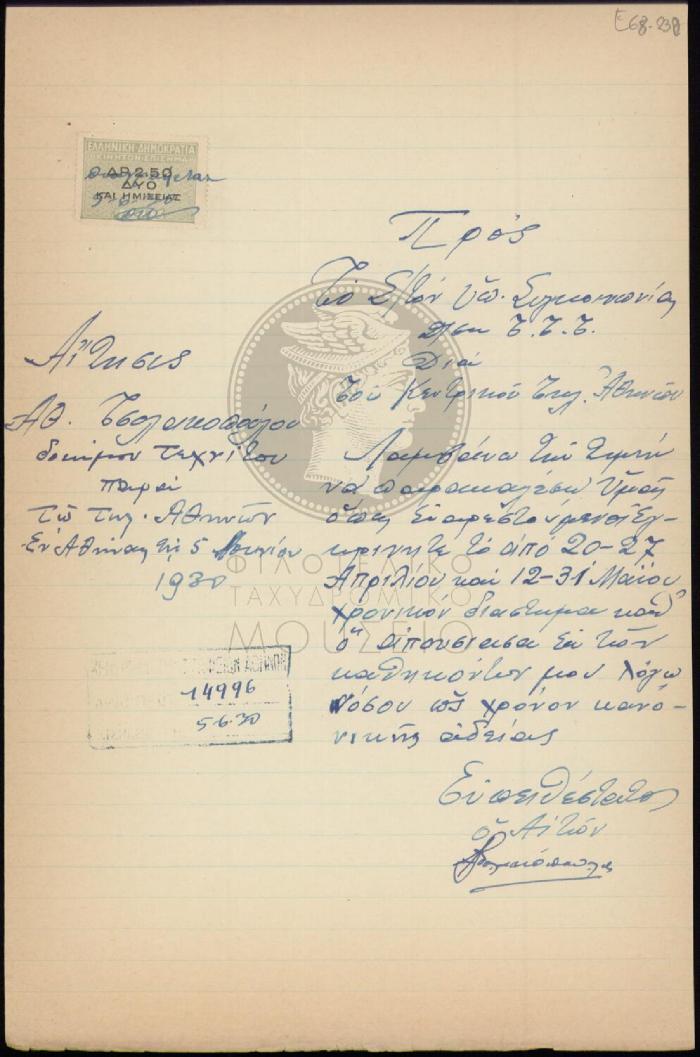 ΕΛΛΗΝΙΚΗ ΔΗΜΟΚΡΑΤΙΑ
ΚΙΝΗΤΟΝ ΕΠΙΣΗΜΑ
ΔΡ 2.50
ΔΥΟ
ΚΑΙ ΗΜΙΣΕΙΑΣ
5-6-30
Πρός
Τό Σ/τόν Ὑπ. Συγκοινωνίας
Τ.Τ.Τ.
Διά
τοῦ Κεντρικοῦ Τηλ. Ἀθηνῶν
Αἴτησις
Αθ. Τσολακοπούλου
δοκίμου τεχνίτου
παρά
τῷ Τηλ. Ἀθηνῶν
Ἐν Ἀθήναις τῇ 5 Ἰουνίου
1930
Λαμβάνω τήν τιμήν
νά παρακαλέσω Ὑμᾶς
ὅπως εὐαρεστούμενοι ἐγ-
κρινητε τό ἀπό 20-27
Ἀπριλίου καί 12-31 Μαΐου
χρονικόν διάστημα καθ'
ὅ ἀπουσίασα ἐκ τῶν
καθηκόντων μου λόγῳ
νόσου ὡς χρόνον κανο-
νικῆς ἀδείας
Εὐπειθέστατος
ὁ Αἰτῶν
14996
5-6-30
ΦΙΛΟΤΕΛΙΚΟ
ΤΑΧΥΔΡΟΜΙΚΟ
ΜΟΥΣΕΙΟ